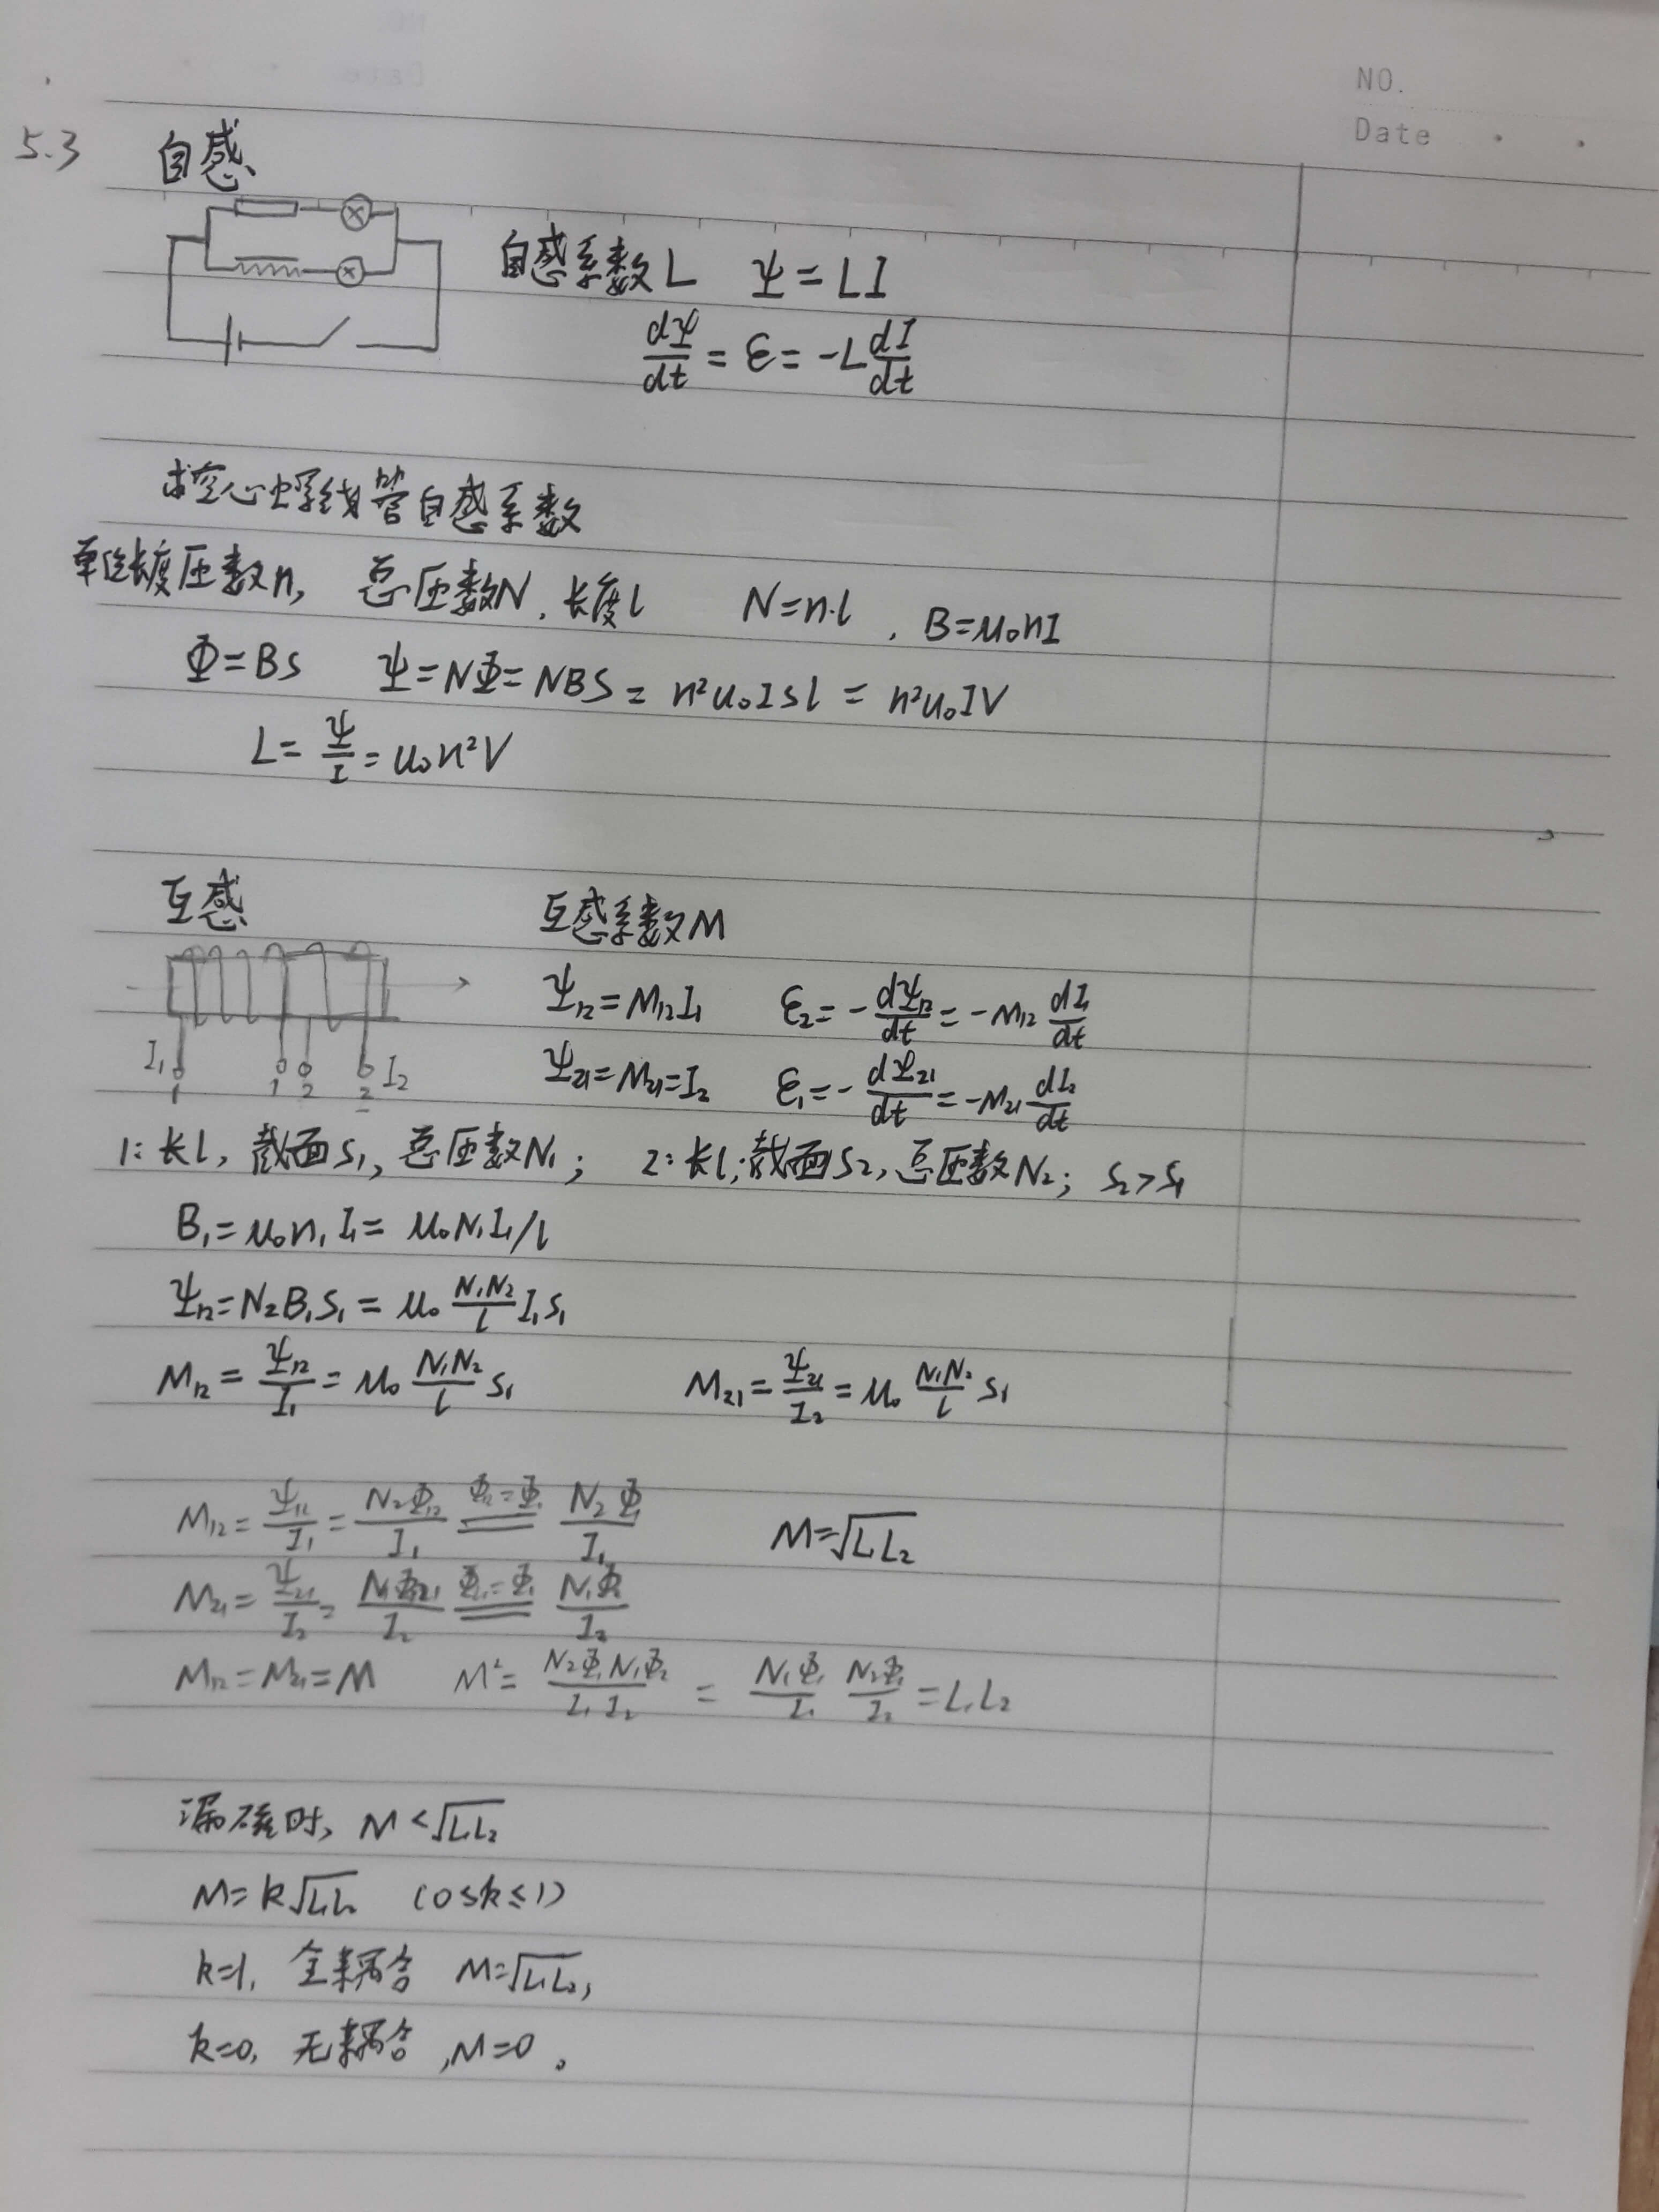 NO.
Date
5.3 自感
自感系数L Ψ=LI
dΨ/dt = ε = -L dI/dt
求空心螺线管自感系数
单位长度匝数n, 总匝数N, 长度l N=n·l, B=μ₀nI
Φ=BS Ψ=NΦ=NBS=n²μ₀ISl=n²μ₀IV
L=Ψ/I=μ₀n²V
互感 互感系数M
Ψ₁₂=M₁₂I₁ ε₂=-dΨ₁₂/dt=-M₁₂ dI₁/dt
I₁ 1 1 2 2 I₂
Ψ₂₁=M₂₁=I₂ ε₁=-dΨ₂₁/dt=-M₂₁ dI₂/dt
1:长l, 截面S₁, 总匝数N₁; 2:长l;截面S₂, 总匝数N₂; S₂>S₁
B₁=μ₀n₁I₁=μ₀N₁I₁/l
Ψ₁₂=N₂B₁S₁=μ₀ N₁N₂/l I₁S₁
M₁₂=Ψ₁₂/I₁=μ₀ N₁N₂/l S₁ M₂₁=Ψ₂₁/I₂=μ₀ N₁N₂/l S₁
M₁₂=Ψ₁₂/I₁=N₂Φ₁₂/I₁ Φ₁₂=Φ₁ N₂Φ₁/I₁ M=√L₁L₂
M₂₁=Ψ₂₁/I₂=N₁Φ₂₁/I₂ N₁Φ₂/I₂
M₁₂=M₂₁=M M²=N₂Φ₁N₁Φ₂/I₁I₂ = N₁Φ₁/I₁ N₂Φ₂/I₂=L₁L₂
漏磁时, M<√L₁L₂
M=k√L₁L₂ (0≤k≤1)
k=1, 全耦合 M=√L₁L₂,
k=0, 无耦合, M=0。